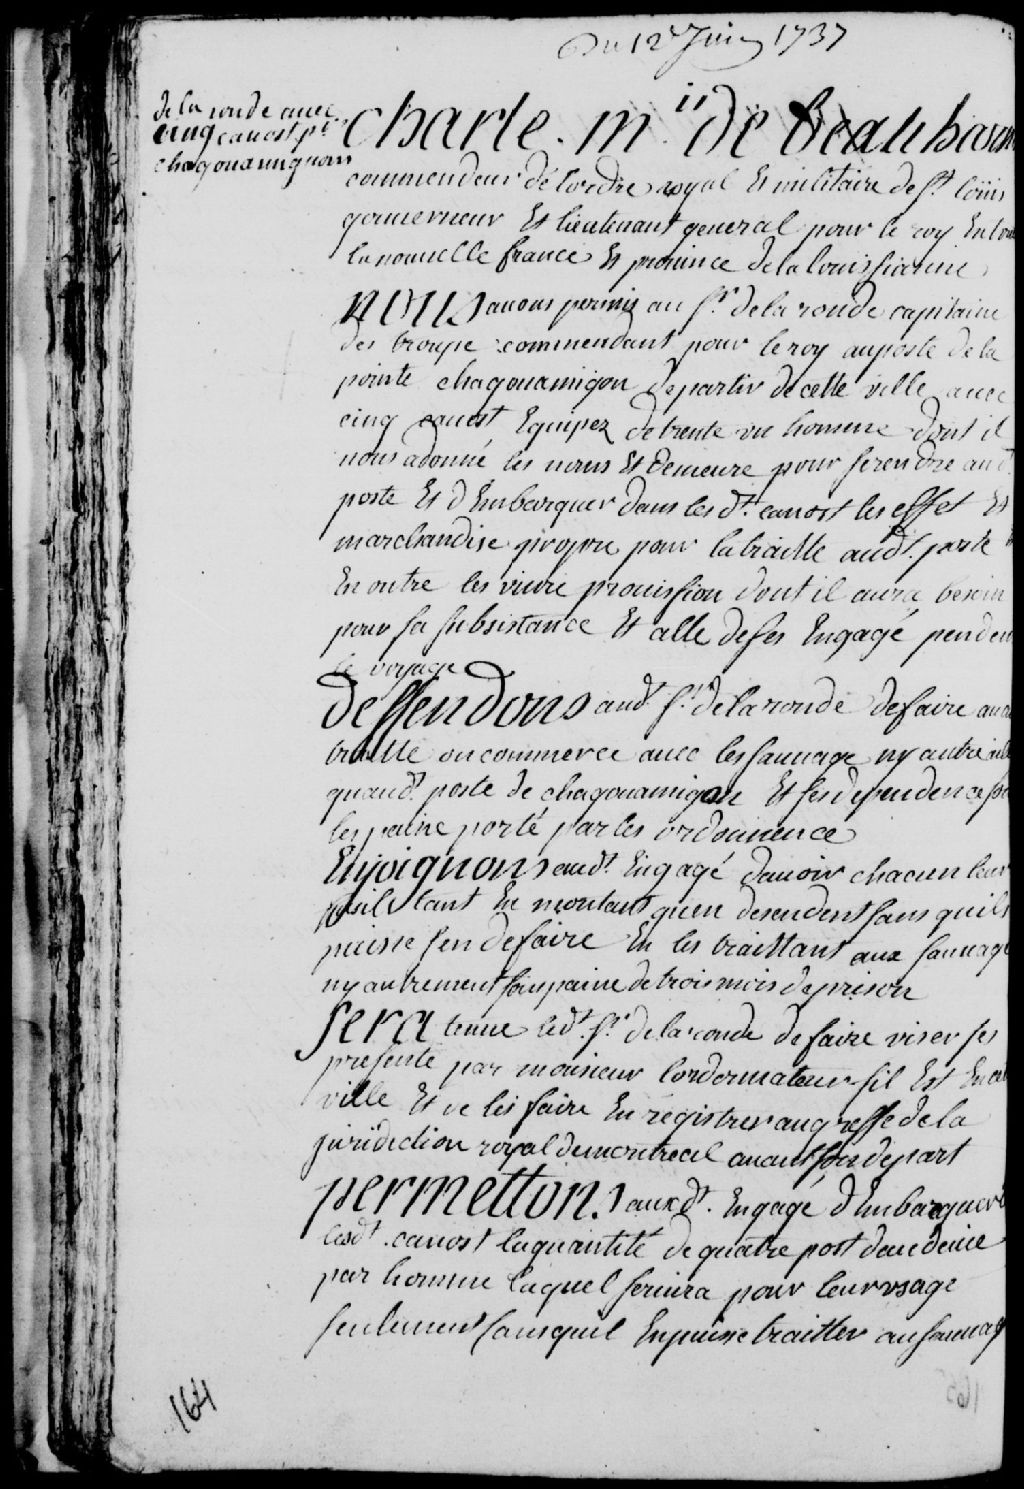 Du 12e Juin 1737
de la ronde avec
cinq canost pr
chagouamigon
Charle. mis de Beauharn
commendeur de lordre royal Et militaire de st. loüis
gouverneur Et lieutenant general pour le roy En tou
la nouelle france Et province de la louissianne
nous avons permis au sr. de la ronde capitaine
des troupe commendant pour le roy au poste de la
pointe chagouamigon de partir de cette ville avec
cinq canost Equipez de trente un homme dont il
nous a donné les noms Et demeure pour se rendre aud.
poste Et d'Embarquer dans les dt. canost les effet Et
marchandise propre pour la traitte audt. poste
En outre les vivre provission dont il aura besoin
pour sa subsistance Et alle de ses Engagé penden
le voyage
Deffendons audt sr. de la ronde de faire aucu
traitte ou commerce avec les sauvage ny autre
quaudt. poste de chagouamigon Et ses dependence
les paine porté par les ordonnence
Enjoignons audt. Engagé davoir chacun leur
fusils tant En montant quen desendent sans quils
puisse sen defaire En les traittant aux sauvage
ny autrement sous paine de trois mois de prison
Sera tenue ledt. sr. de la ronde de faire viser ses
presente par monsieur lordonnateur sil Est En
ville Et de les faire En registrer au greffe de la
juridiction royal de montreal avant son depart
permettons auxdt. Engagé d'Embarquer
lesdt. canost la quantité de quatre post deaudevie
par homme laquel servira pour leur usage
seulement sans quil En puisse traitter au sauvag
164
165